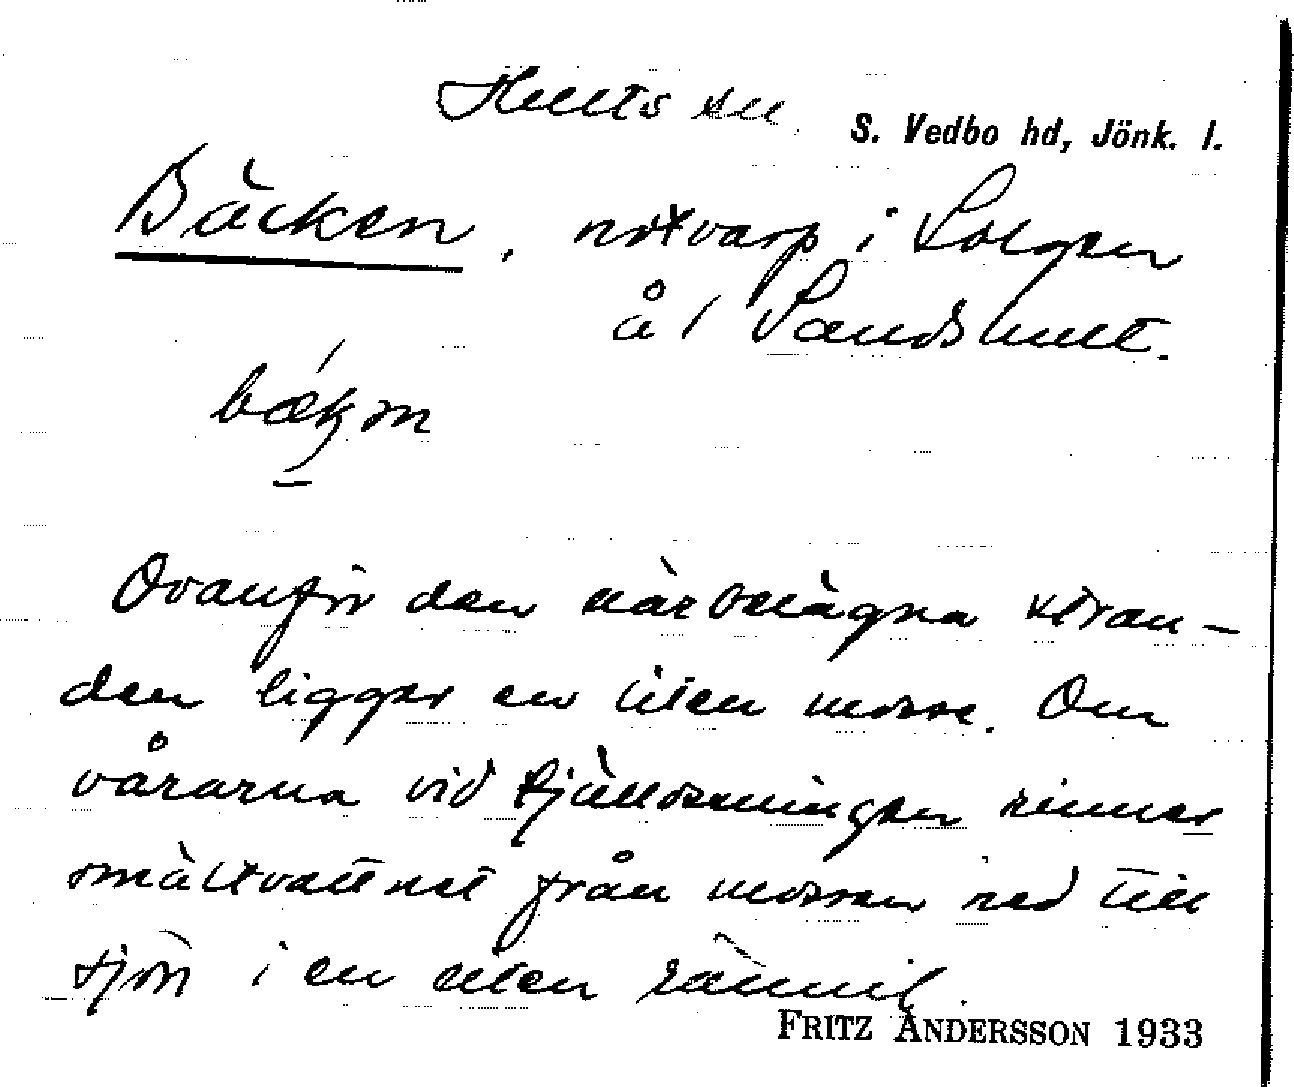 Hults sn S. Vedbo hd, Jönk. l.
Bäcken, notvarp i Solgen
å / Sandshult.
bækən
Ovanför den närbelägna stran-
den ligger en liten mosse. Om
vårarna vid tjällossningen rinner
smältvattnet från mossen ned till
sjön i en liten rännil.
FRITZ ANDERSSON 1933